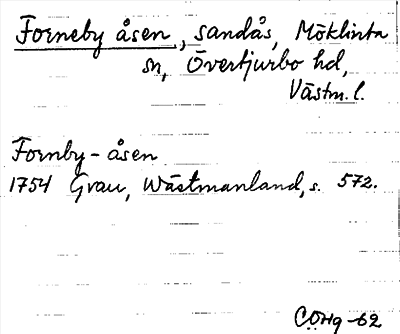 Forneby åsen, sandås, Möklinta
sn, Övertjurbo hd,
Västm. l.
Fornby-åsen
1754 Grau, Wästmanland, s. 572.
C.OHg -62